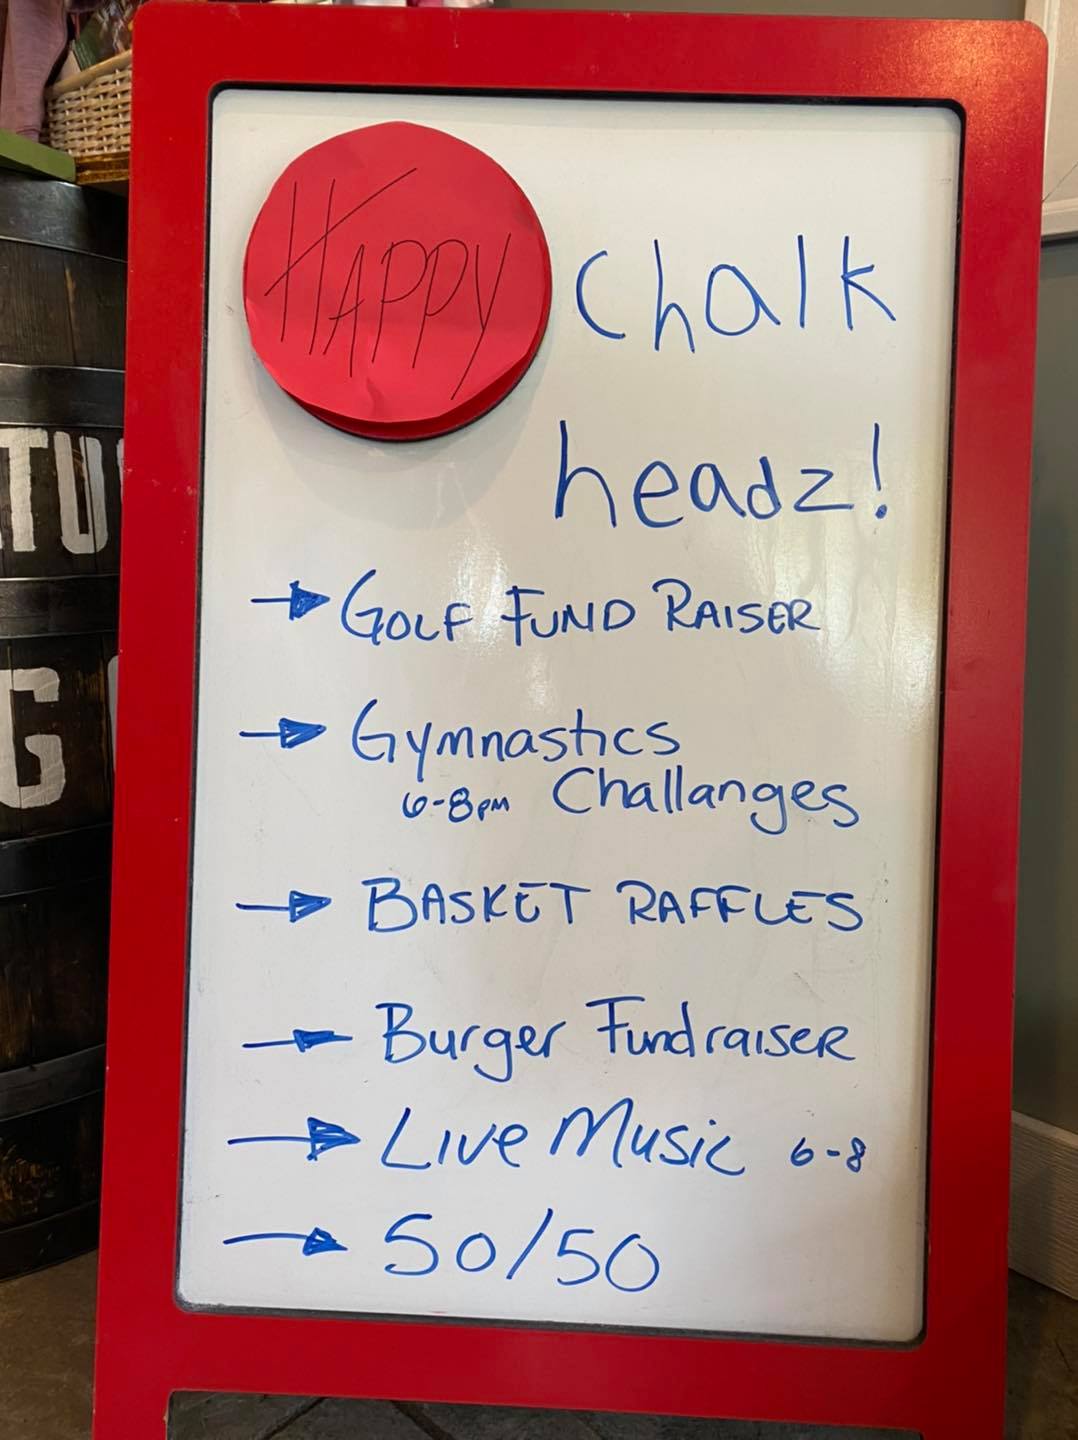 HAPPY chalk
headz!
GOLF FUND RAISER
Gymnastics
6-8pm Challanges
BASKET RAFFLES
Burger Fundraiser
Live Music 6-8
50/50